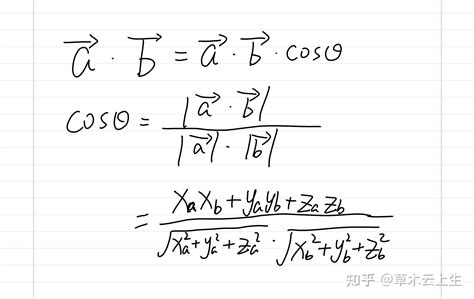 a⃗ · b⃗ = a⃗ · b⃗ · cosθ
cosθ = |a⃗ · b⃗| / |a⃗| · |b⃗|
= xₐx_b + yₐy_b + zₐz_b / √(xₐ² + yₐ² + zₐ²) · √(x_b² + y_b² + z_b²)
知乎 @草木云上生